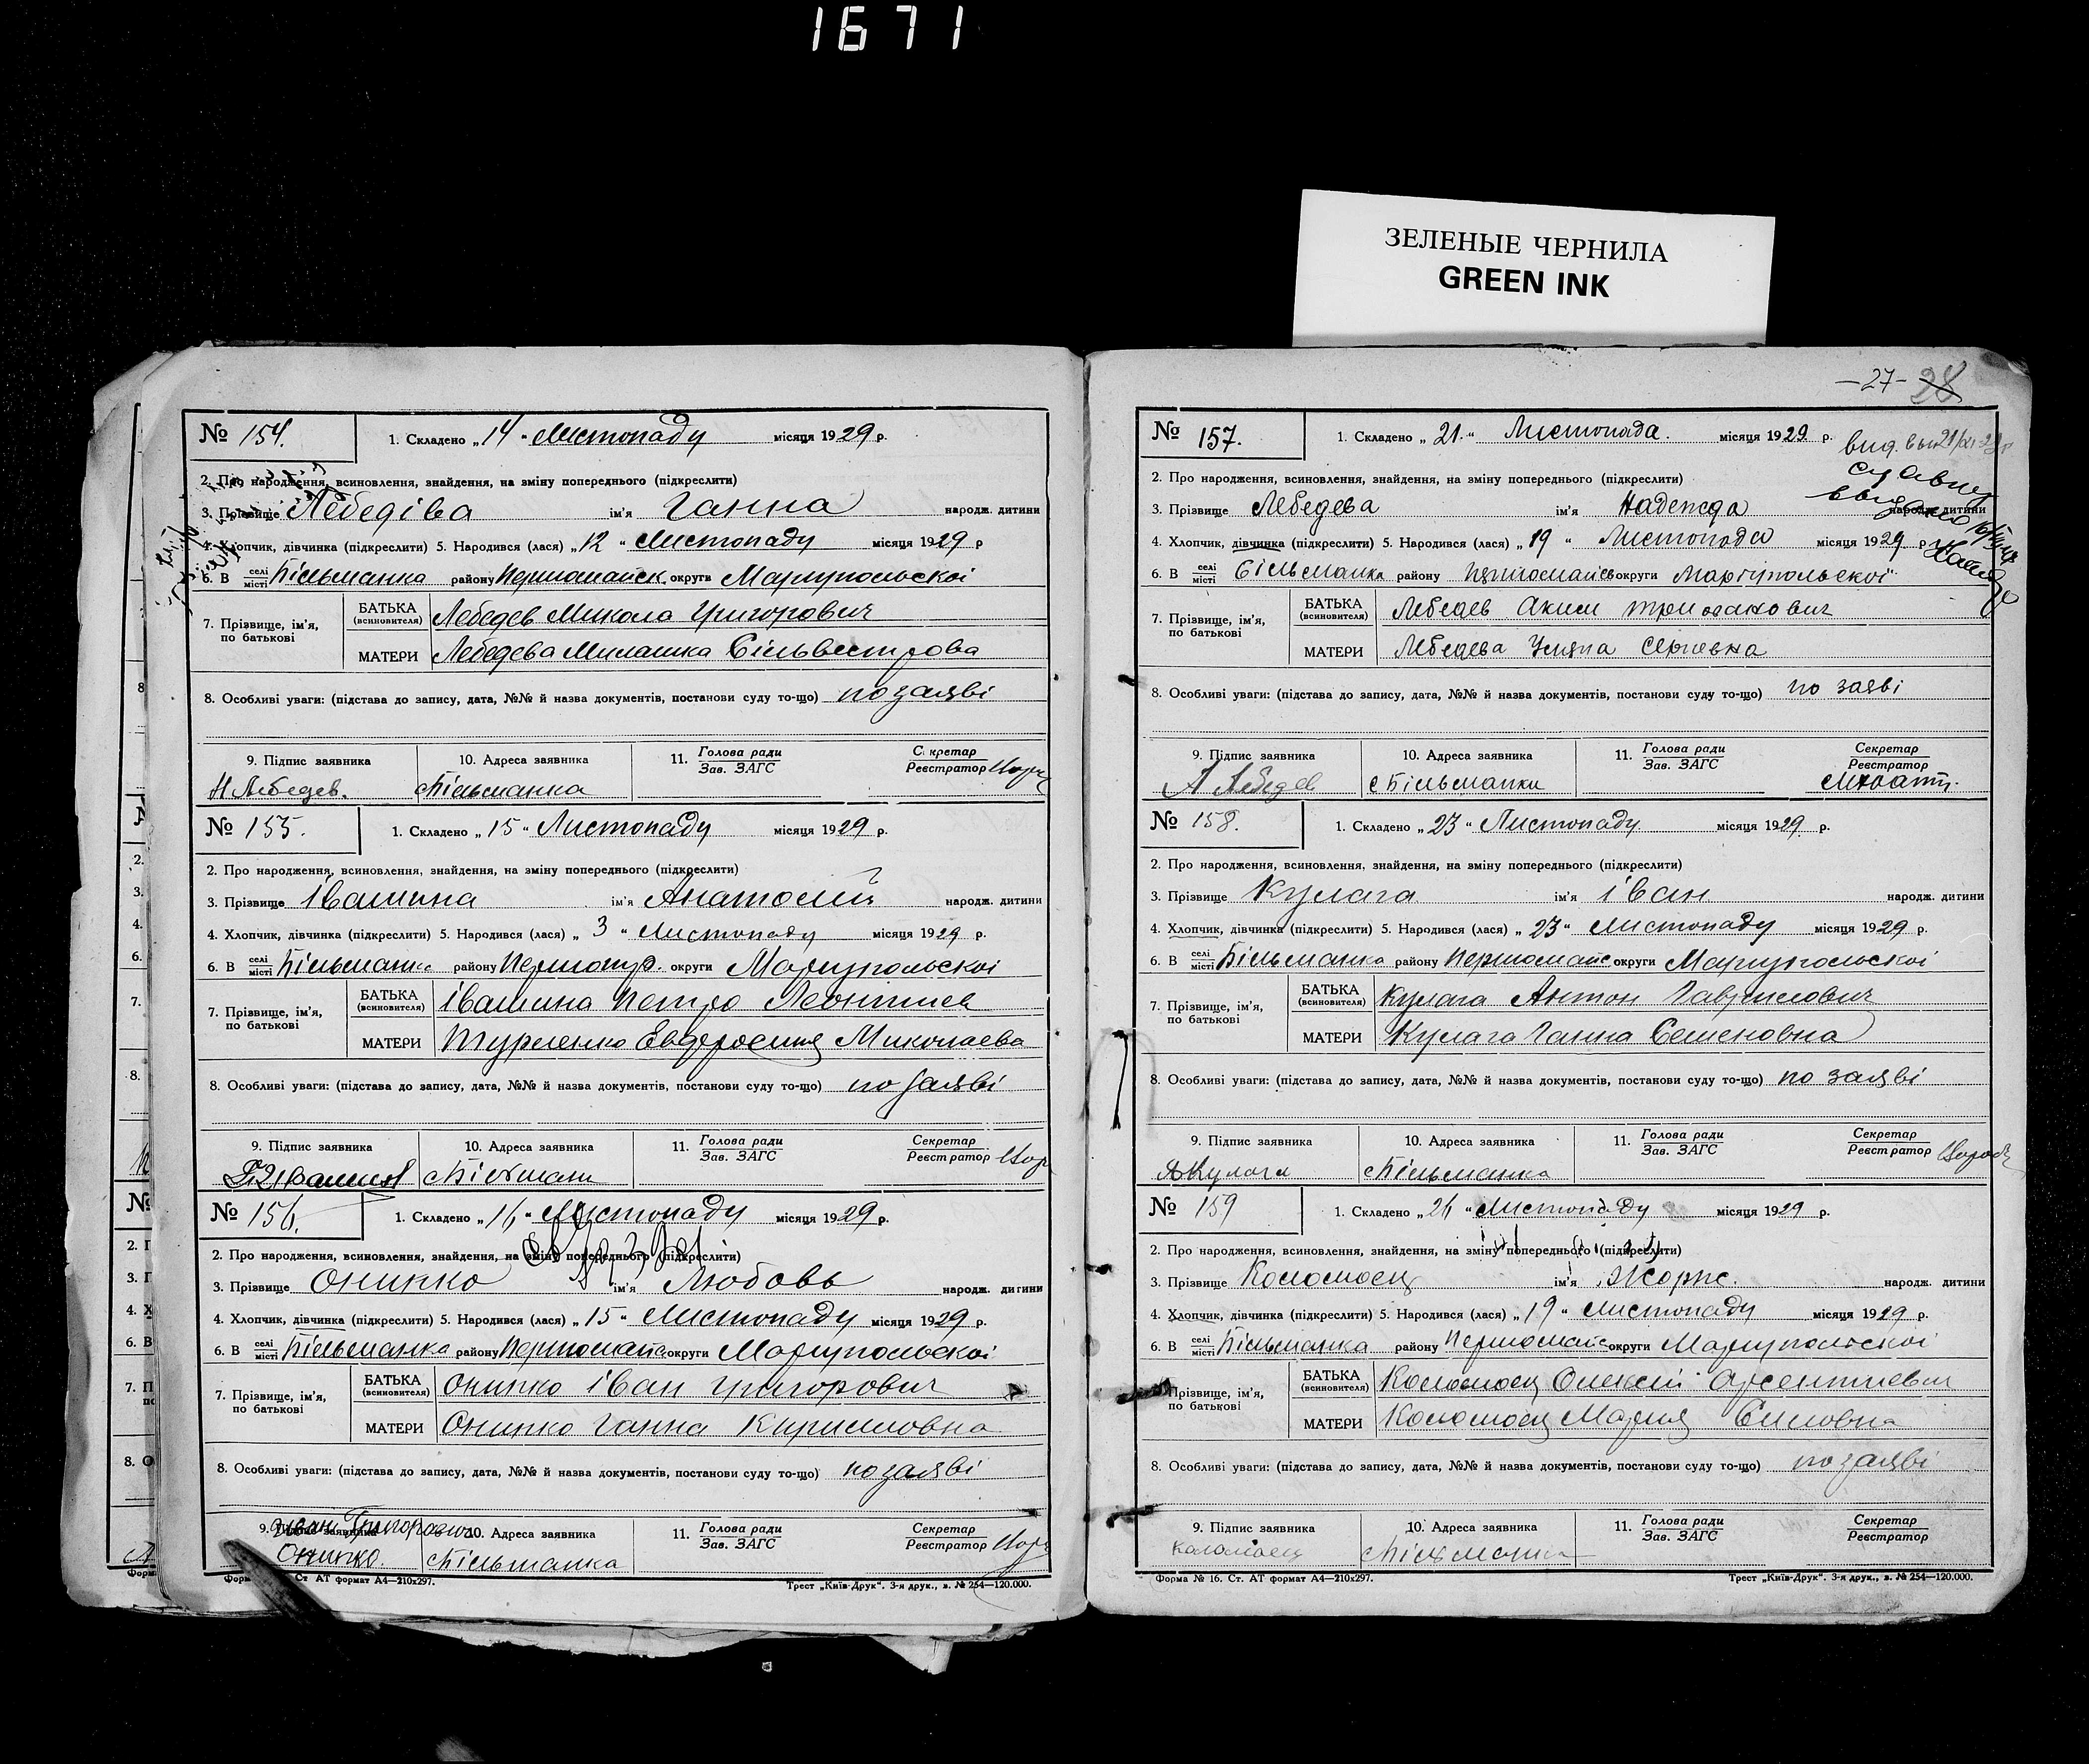 1671
ЗЕЛЕНЫЕ ЧЕРНИЛА
GREEN INK
№ 154. 1. Складено „14“ Листопаду місяця 1929 р.
2. Про народження, всиновлення, знайдення, на зміну попереднього (підкреслити)
3. Прізвище Лебедіва ім'я Ганна народж. дитини
4. Хлопчик, дівчинка (підкреслити) 5. Народився (лася) „12“ Листопаду місяця 1929 р
6. В селі/місті Більманка району Першомайск округи Маріупольскоі
7. Прізвище, ім'я, по батькові
БАТЬКА (всиновителя) Лебедев Микола Григорович
МАТЕРИ Лебедева Милашка Сільвестрова
8. Особливі уваги: (підстава до запису, дата, №№ й назва документів, постанови суду то-що) по заяві
9. Підпис заявника 10. Адреса заявника 11. Голова ради/Зав. ЗАГС Секретар/Реєстратор
Н Лебедев. с Більманка
№ 155. 1. Складено „15“ Листопаду місяця 1929 р.
2. Про народження, всиновлення, знайдення, на зміну попереднього (підкреслити)
3. Прізвище Івашина ім'я Анатолій народж. дитини
4. Хлопчик, дівчинка (підкреслити) 5. Народився (лася) „3“ Листопаду місяця 1929 р.
6. В селі/місті Більманка району округи Маріупольскоі
7. Прізвище, ім'я, по батькові
БАТЬКА (всиновителя) Івашина Петро Леонтиев
МАТЕРИ Миколаева
8. Особливі уваги: (підстава до запису, дата, №№ й назва документів, постанови суду то-що) по заяві
9. Підпис заявника 10. Адреса заявника 11. Голова ради/Зав. ЗАГС Секретар/Реєстратор
№ 156. 1. Складено „16“ Листопаду місяця 1929 р.
2. Про народження, всиновлення, знайдення, на зміну попереднього (підкреслити)
3. Прізвище Онипко ім'я Любовь народж. дитини
4. Хлопчик, дівчинка (підкреслити) 5. Народився (лася) „15“ Листопаду місяця 1929 р.
6. В селі/місті Більманка району Першомайс округи Маріупольскоі
7. Прізвище, ім'я, по батькові
БАТЬКА (всиновителя) Онипко Іван Григорович
МАТЕРИ Онипко Ганна Кирилловна
8. Особливі уваги: (підстава до запису, дата, №№ й назва документів, постанови суду то-що) по заяві
9. Підпис заявника 10. Адреса заявника 11. Голова ради/Зав. ЗАГС Секретар/Реєстратор
Иван Григорович
Онипко. с Більманка
Форм Ст АТ формат А4—210х297. Трест „Київ-Друк“. 3-я друк., в. № 254—120.000.
—27— 28
№ 157. 1. Складено „21.“ Листопада. місяця 1929 р.
2. Про народження, всиновлення, знайдення, на зміну попереднього (підкреслити)
3. Прізвище Лебедева ім'я Надежда народж. дитини
4. Хлопчик, дівчинка (підкреслити) 5. Народився (лася) „19“ Листопада місяця 1929 р
6. В селі/місті Більманка району округи Маріупольскоі
7. Прізвище, ім'я, по батькові
БАТЬКА (всиновителя) Лебедев Аким
МАТЕРИ Лебедева Уляна Сергиевна
8. Особливі уваги: (підстава до запису, дата, №№ й назва документів, постанови суду то-що) по заяві
9. Підпис заявника 10. Адреса заявника 11. Голова ради/Зав. ЗАГС Секретар/Реєстратор
А Лебедев с Більманки
№ 158. 1. Складено „23“ Листопаду місяця 1929 р.
2. Про народження, всиновлення, знайдення, на зміну попереднього (підкреслити)
3. Прізвище Кулага ім'я Іван народж. дитини
4. Хлопчик, дівчинка (підкреслити) 5. Народився (лася) „23“ Листопаду місяця 1929 р.
6. В селі/місті Більманка району Першомайс округи Маріупольскоі
7. Прізвище, ім'я, по батькові
БАТЬКА (всиновителя) Кулага Антон Гаврилович
МАТЕРИ Кулага Ганна Семеновна
8. Особливі уваги: (підстава до запису, дата, №№ й назва документів, постанови суду то-що) по заяві
9. Підпис заявника 10. Адреса заявника 11. Голова ради/Зав. ЗАГС Секретар/Реєстратор
А Кулага с Більманка
№ 159 1. Складено „26“ Листопаду місяця 1929 р.
2. Про народження, всиновлення, знайдення, на зміну попереднього (підкреслити)
3. Прізвище Коломоец ім'я Жорж. народж. дитини
4. Хлопчик, дівчинка (підкреслити) 5. Народився (лася) „19“ Листопаду місяця 1929 р.
6. В селі/місті Більманка району Першомайс округи Маріупольскоі
Прізвище, ім'я, по батькові
БАТЬКА (всиновителя) Коломоец Олексій Арсентиевич
МАТЕРИ Коломоец Мария
8. Особливі уваги: (підстава до запису, дата, №№ й назва документів, постанови суду то-що) по заяві
9. Підпис заявника 10. Адреса заявника 11. Голова ради/Зав. ЗАГС Секретар/Реєстратор
Коломоец с Більманка
Форма № 16. Ст. АТ формат А4—210х297. Трест „Київ-Друк“. 3-я друк., в. № 254—120.000.